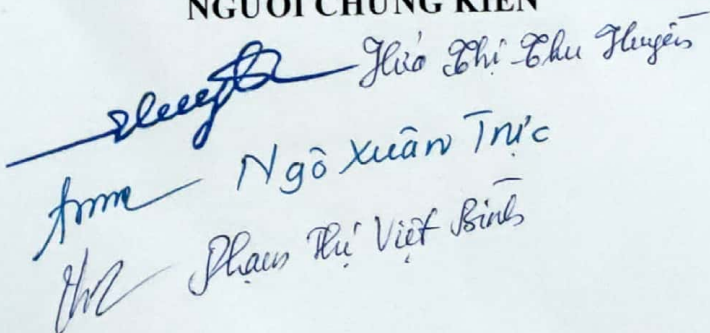 NGƯỜI CHỨNG KIẾN
Hứa Thị Thu Huyền
Ngô Xuân Trực
Phạm Thị Việt Bình